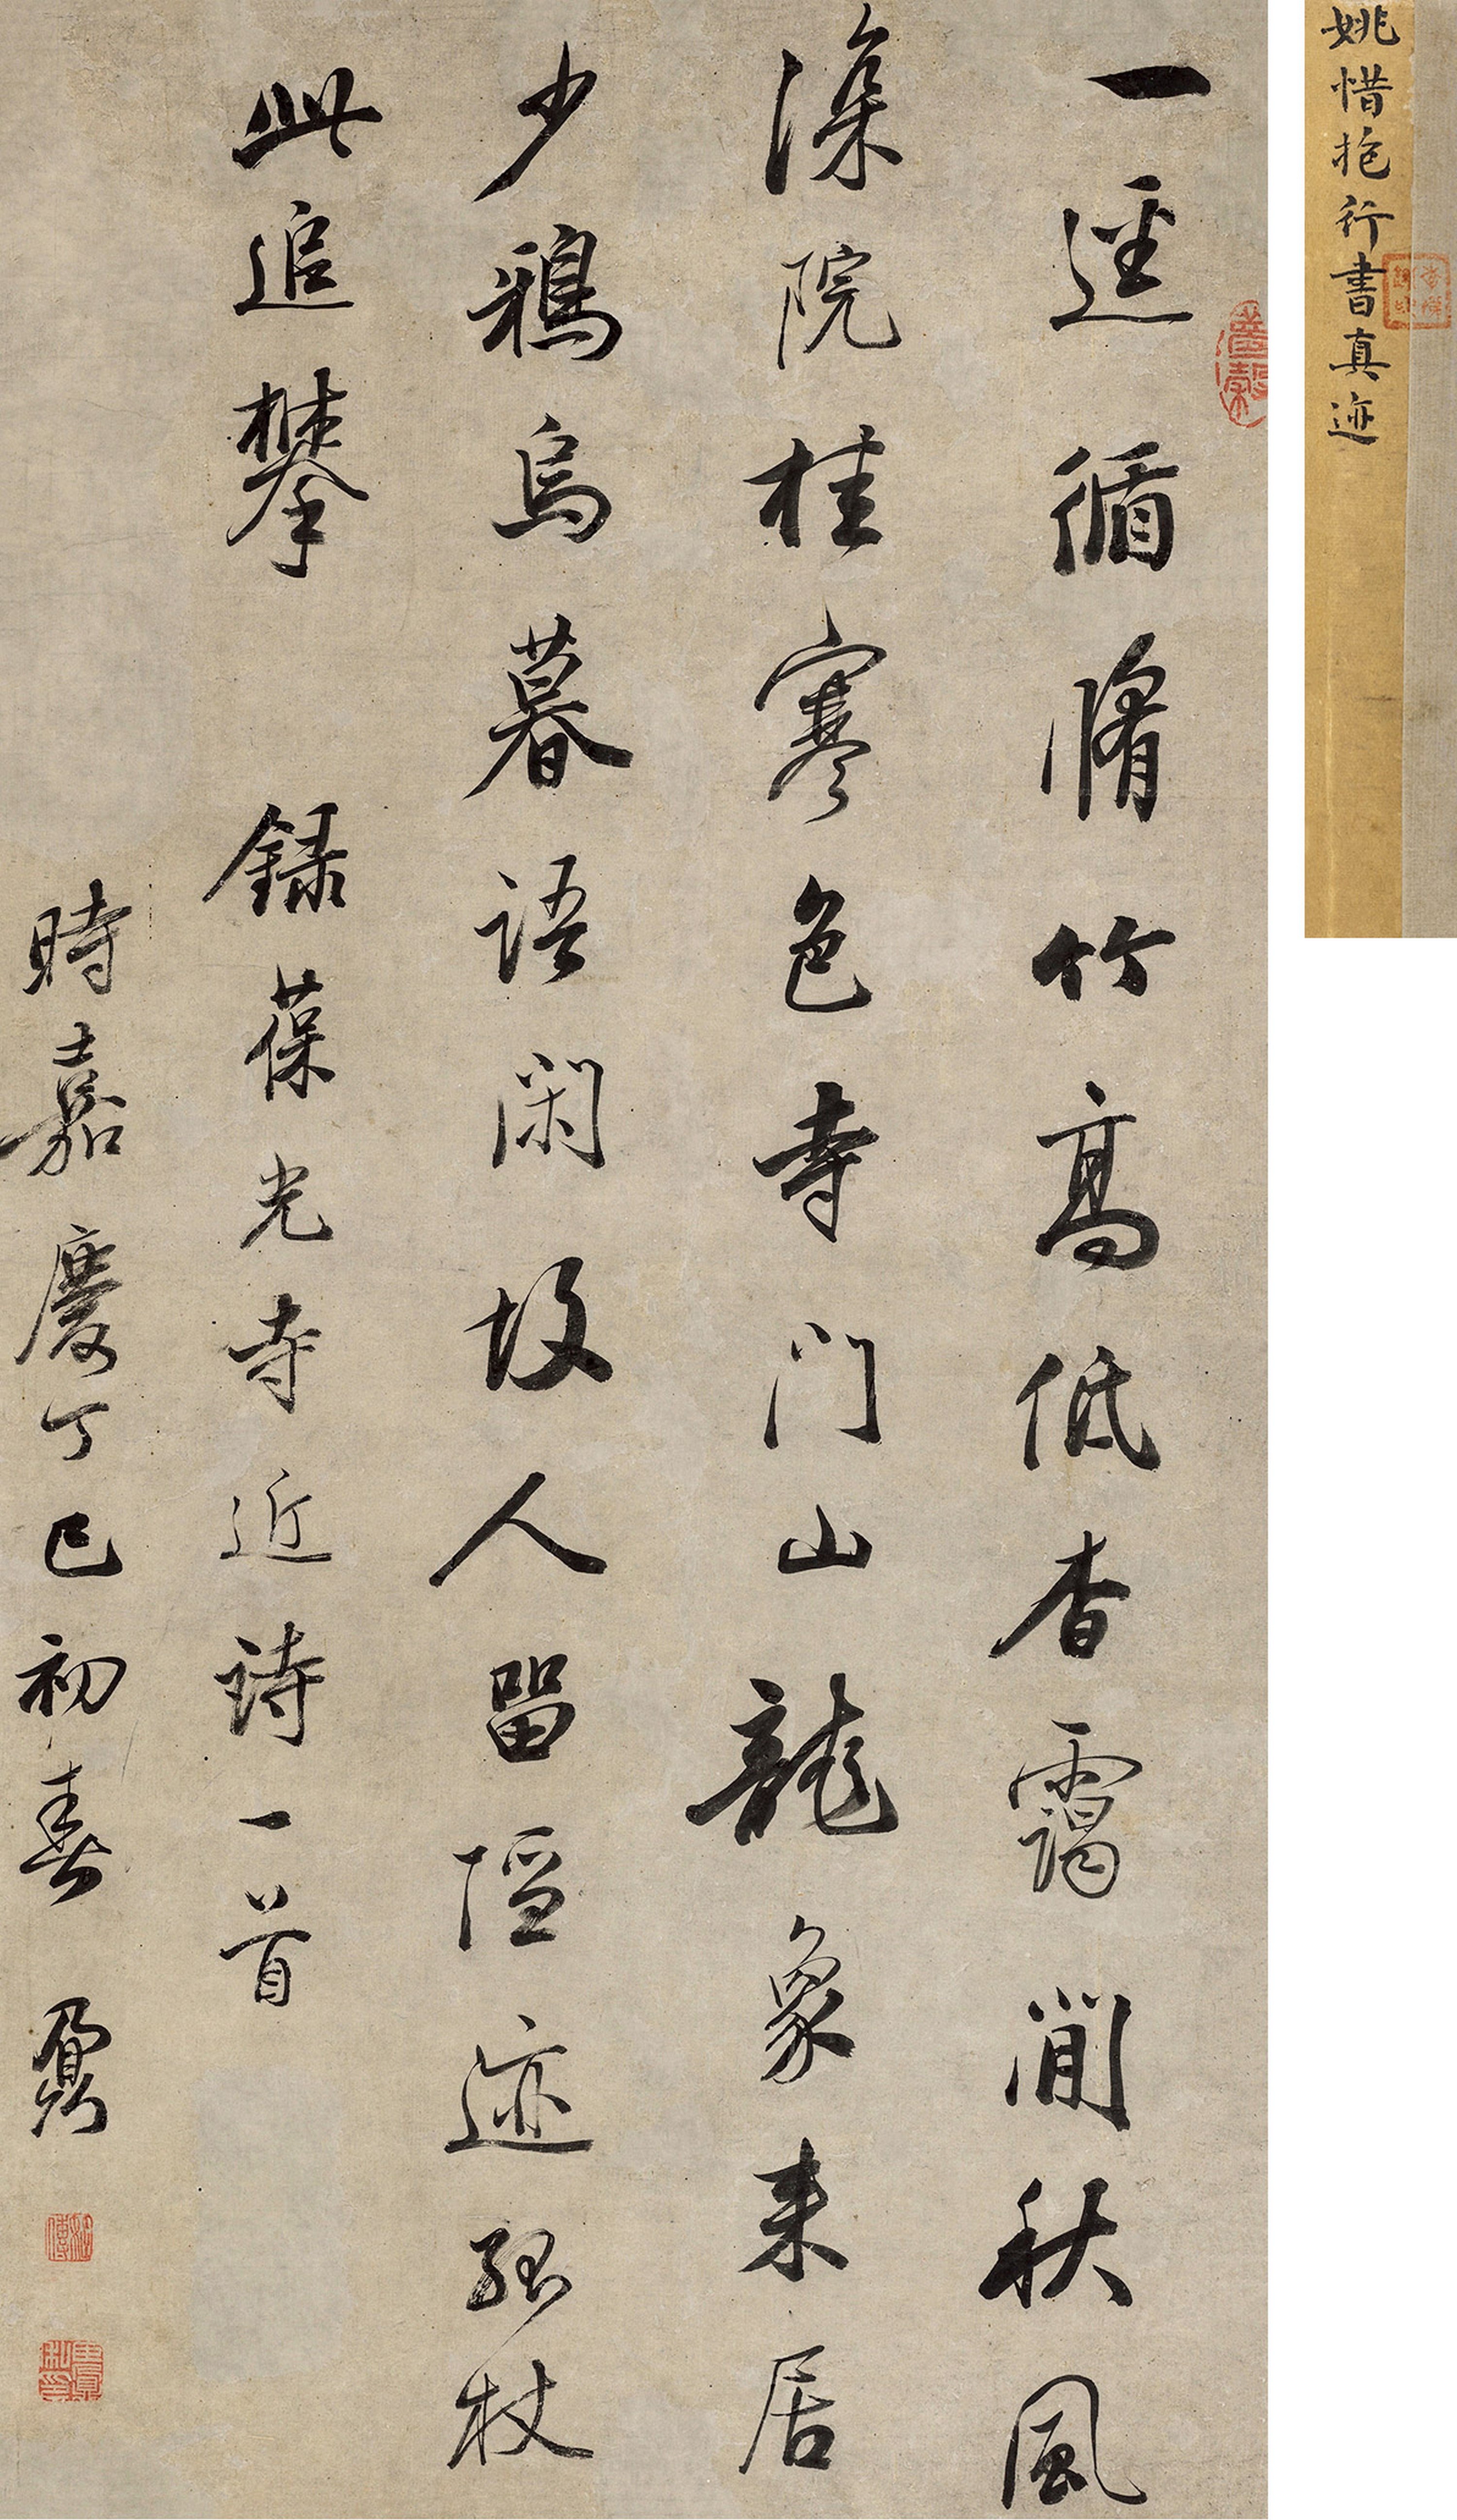 姚惜抱行書真迹
一逕循脩竹高低杳靄間秋風
深院桂寒色寺門山龍象来居
少鴉烏暮語閑故人留隱迹孤杖
此追攀 録葆光寺近詩一首
時嘉慶丁巳初春 鼐